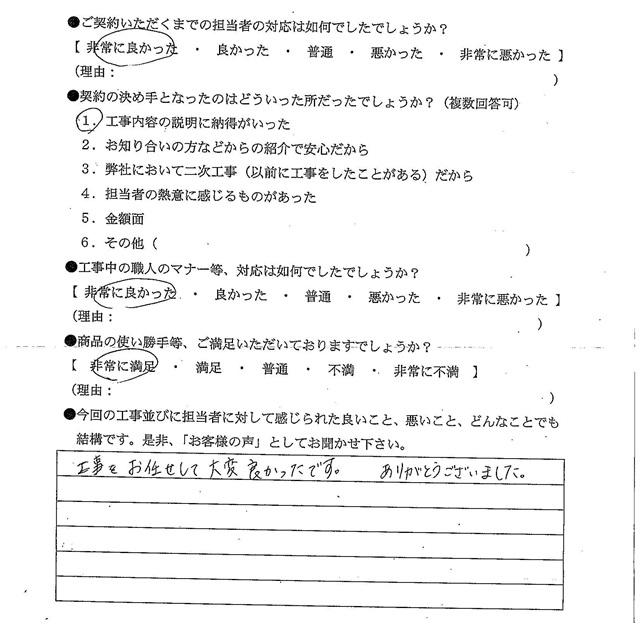 ●ご契約いただくまでの担当者の対応は如何でしたでしょうか？
【 非常に良かった ・ 良かった ・ 普通 ・ 悪かった ・ 非常に悪かった 】
（理由： ）
●契約の決め手となったのはどういった所だったでしょうか？（複数回答可）
1．工事内容の説明に納得がいった
2．お知り合いの方などからの紹介で安心だから
3．弊社において二次工事（以前に工事をしたことがある）だから
4．担当者の熱意に感じるものがあった
5．金額面
6．その他（ ）
●工事中の職人のマナー等、対応は如何でしたでしょうか？
【 非常に良かった ・ 良かった ・ 普通 ・ 悪かった ・ 非常に悪かった 】
（理由： ）
●商品の使い勝手等、ご満足いただいておりますでしょうか？
【 非常に満足 ・ 満足 ・ 普通 ・ 不満 ・ 非常に不満 】
（理由： ）
●今回の工事並びに担当者に対して感じられた良いこと、悪いこと、どんなことでも
結構です。是非、「お客様の声」としてお聞かせ下さい。
工事をお任せして大変良かったです。 ありがとうございました。